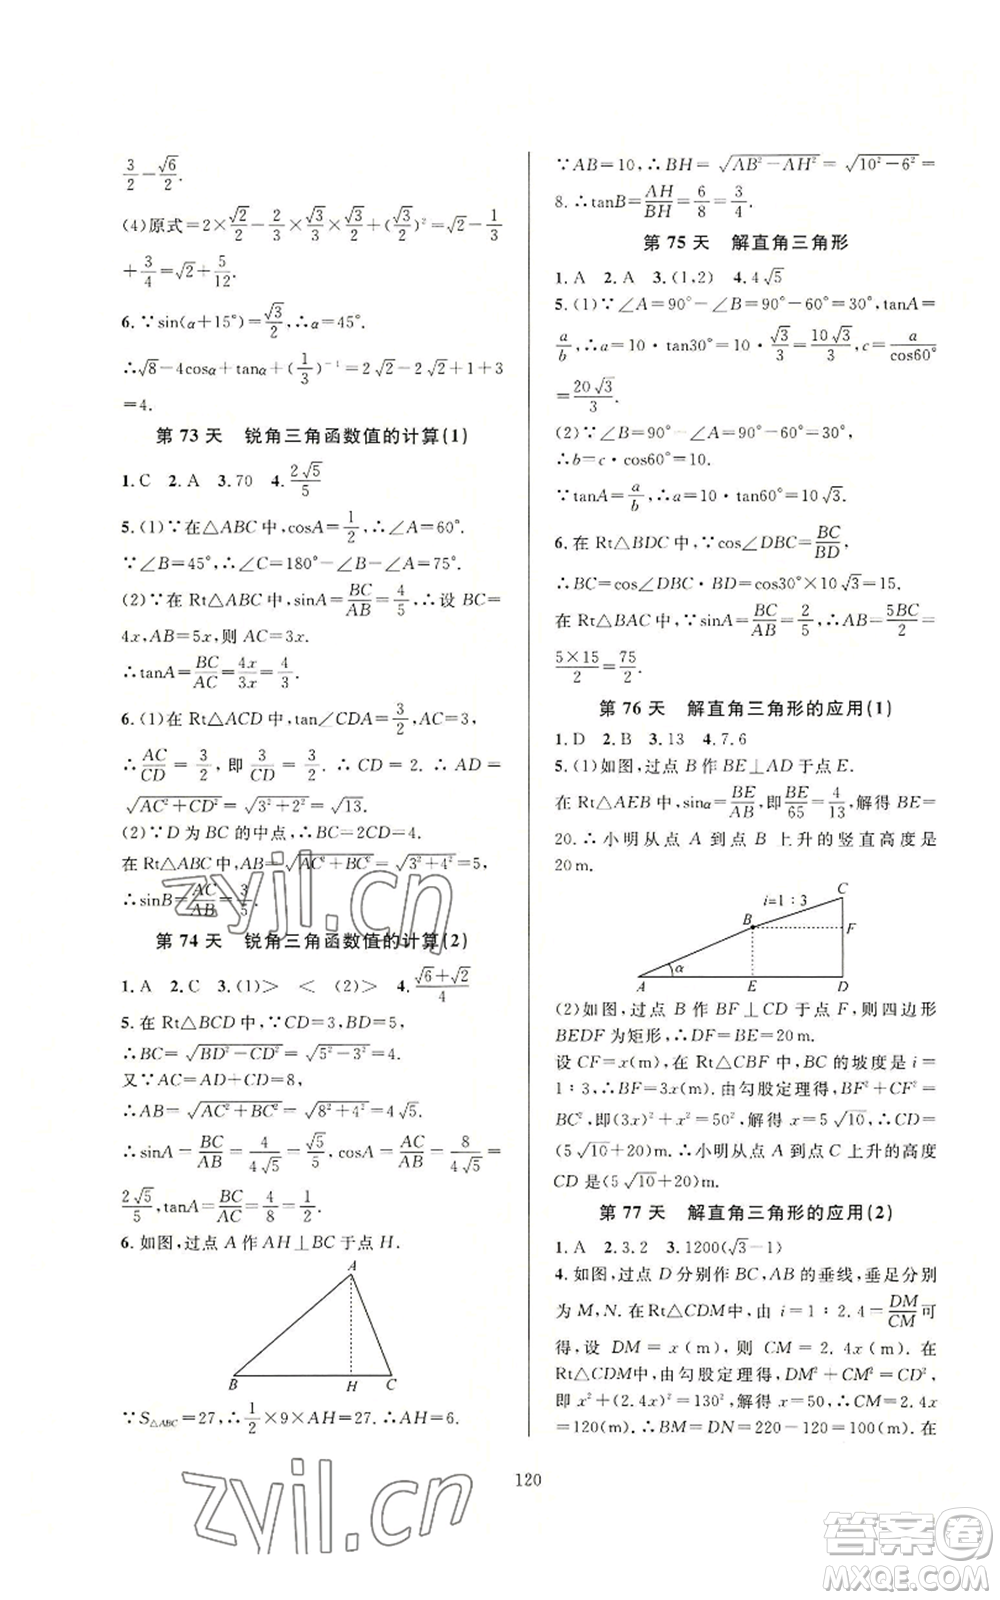 3/2 − √6/2.
(4)原式=2×√2/2−2/3×√3/2×√3/2+(√3/2)²=√2−1/2
+3/4=√2+5/12.
6.∵sin(α+15°)=√3/2,∴α=45°.
∴√8−4cosα+tanα+(1/3)⁻¹=2√2−2√2+1+3
=4.
第 73 天 锐角三角函数值的计算(1)
1.C 2.A 3.70 4.2√5/5
5.(1)∵在△ABC中,cosA=1/2,∴∠A=60°.
∵∠B=45°,∴∠C=180°−∠B−∠A=75°.
(2)∵在 Rt△ABC中,sinA=BC/AB=4/5,∴设 BC=
4x,AB=5x,则 AC=3x.
∴tanA=BC/AC=4x/3x=4/3.
6.(1)在 Rt△ACD 中,tan∠CDA=3/2,AC=3,
∴AC/CD=3/2,即3/CD=3/2.∴CD=2.∴AD=
√AC²+CD²=√3²+2²=√13.
(2)∵D为BC的中点,∴BC=2CD=4.
在 Rt△ABC 中,AB=√AC²+BC²=√3²+4²=5,
∴sinB=AC/AB=3/5.
第 74 天 锐角三角函数值的计算(2)
1.A 2.C 3.(1)> < (2)> 4.√6+√2/4
5.在 Rt△BCD 中,∵CD=3,BD=5,
∴BC=√BD²−CD²=√5²−3²=4.
又∵AC=AD+CD=8,
∴AB=√AC²+BC²=√8²+4²=4√5.
∴sinA=BC/AB=4/4√5=√5/5,cosA=AC/AB=8/4√5=
2√5/5,tanA=BC/AC=4/8=1/2.
6.如图,过点 A 作 AH⊥BC 于点 H.
A
B H C
∵S△ABC=27,∴1/2×9×AH=27.∴AH=6.
∵AB=10,∴BH=√AB²−AH²=√10²−6²=
8.∴tanB=AH/BH=6/8=3/4.
第 75 天 解直角三角形
1.A 2.A 3.(1,2) 4.4√5
5.(1)∵∠A=90°−∠B=90°−60°=30°,tanA=
a/b,∴a=10·tan30°=10·√3/3=10√3/3,c=a/cos60°=
20√3/3.
(2)∵∠B=90°−∠A=90°−60°=30°,
∴b=c·cos60°=10.
∵tanA=a/b,∴a=10·tan60°=10√3.
6.在 Rt△BDC 中,∵cos∠DBC=BC/BD,
∴BC=cos∠DBC·BD=cos30°×10√3=15.
在 Rt△BAC 中,∵sinA=BC/AB=2/5,∴AB=5BC/2=
5×15/2=75/2.
第 76 天 解直角三角形的应用(1)
1.D 2.B 3.13 4.7.6
5.(1)如图,过点B作BE⊥AD于点E.
在 Rt△AEB 中,sinα=BE/AB,即BE/65=4/13,解得 BE=
20.∴小明从点 A 到点 B 上升的竖直高度是
20m.
C
i=1∶3
B F
α
A E D
(2)如图,过点 B 作 BF⊥CD 于点 F,则四边形
BEDF为矩形,∴DF=BE=20m.
设 CF=x(m),在 Rt△CBF 中,BC的坡度是 i=
1∶3,∴BF=3x(m).由勾股定理得,BF²+CF²=
BC²,即(3x)²+x²=50²,解得 x=5√10,∴CD=
(5√10+20)m.∴小明从点 A 到点 C 上升的高度
CD是(5√10+20)m.
第 77 天 解直角三角形的应用(2)
1.A 2.3.2 3.1200(√3−1)
4.如图,过点 D分别作BC,AB的垂线,垂足分别
为 M,N.在 Rt△CDM中,由 i=1∶2.4=DM/CM可
得,设 DM=x(m),则 CM=2.4x(m).在
Rt△CDM中,由勾股定理得,DM²+CM²=CD²,
即 x²+(2.4x)²=130²,解得 x=50.∴CM=2.4x
=120(m).∴BM=DN=220−120=100(m).在
120
zyjl.cn
zyjl.cn
答案卷
MXQE.COM